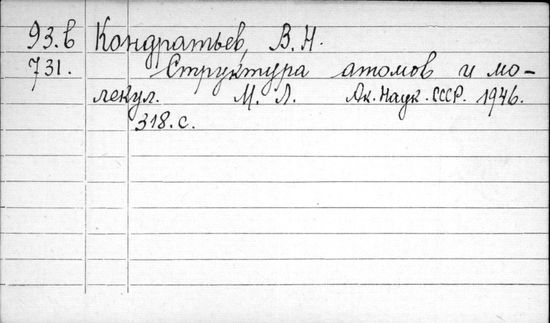 93.в Кондратьев, В.Н.
731. Структура атомов и мо-
лекул. М. Л. Ак. Наук. СССР. 1946.
318. с.